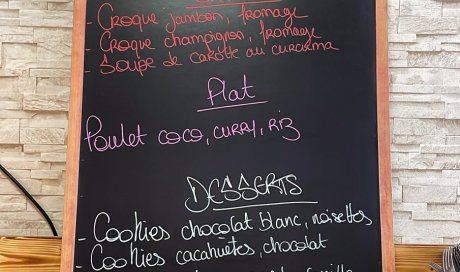 - Croque jambon, fromage
- Croque champignon, fromage
- Soupe de carotte au curcuma
Plat
Poulet coco, curry, riz
DESSERTS
- Cookies chocolat blanc, noisettes
- Cookies cacahuètes, chocolat